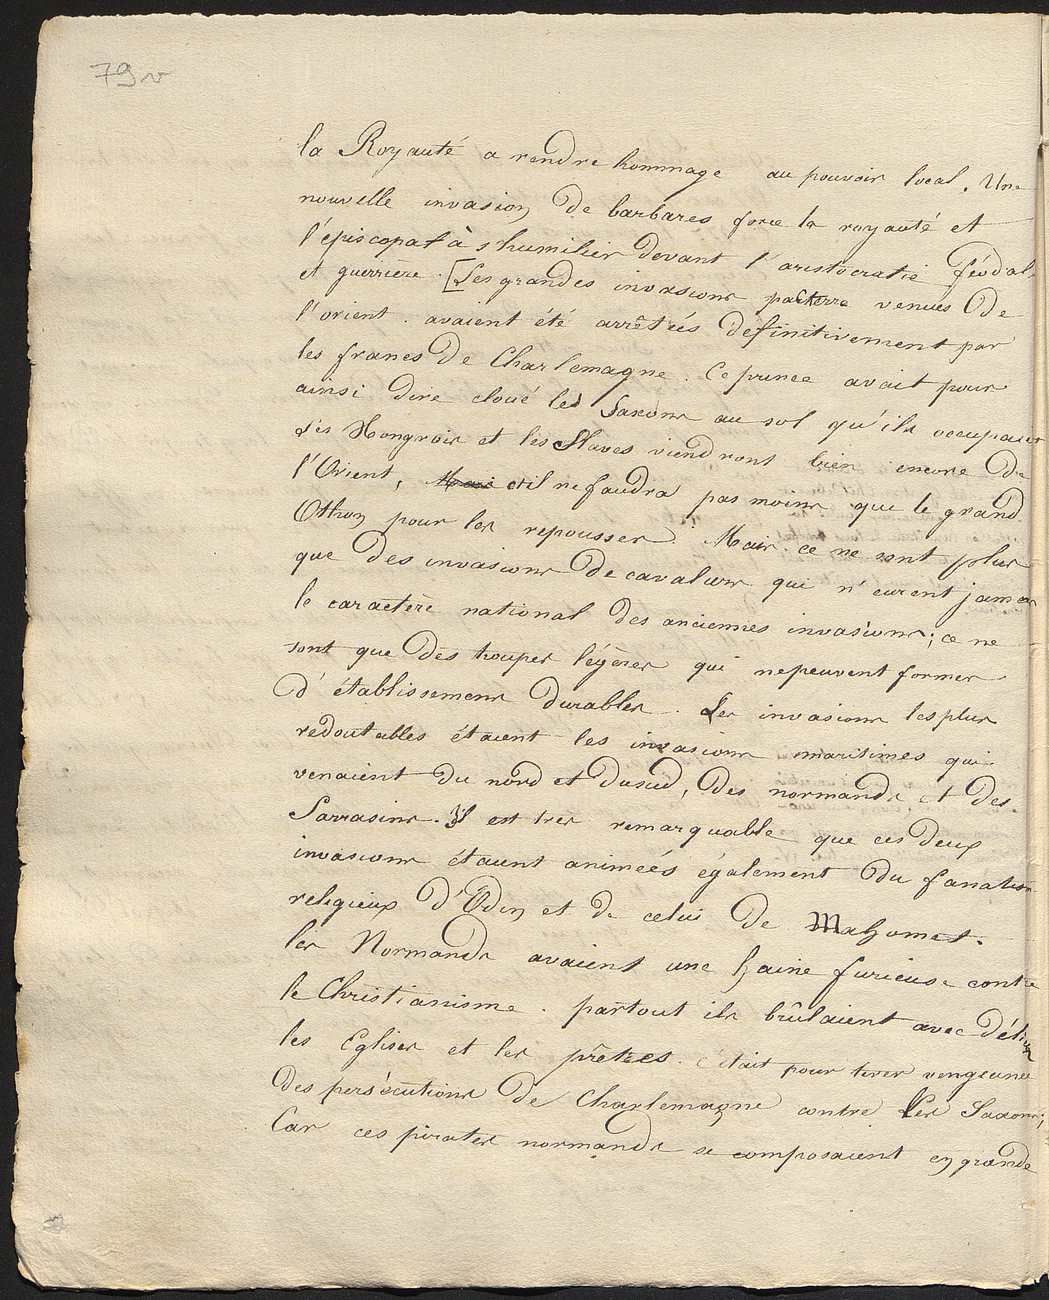 79 v
la Royauté a rendre hommage au pouvoir local. Une
nouvelle invasion de barbares force la royauté et
l'épiscopat à s'humilier devant l'aristocratie féodale
et guerrière. [Les grandes invasions par terre venues de
l'orient. avaient été arrêtrés definitivement par
les francs de Charlemagne. Ce prince avait pour
ainsi dire cloué les Saxons au sol qu'ils occupaient
Les Hongrois et les Slaves viendront bien encore de
l'Orient, Mais et il ne faudra pas moins que le grand
Othon pour les repousser. Mais ce ne sont plus
que des invasions de cavaliers qui n'eurent jamais
le caractère national des anciennes invasions; ce ne
sont que des troupes légères qui ne peuvent former
d'établissemens durables. Les invasions les plus
redoutables étaient les invasions maritimes qui
venaient du nord et du sud, des normands et des
Sarrasins. Il est très remarquable que ces deux
invasions étaient animées également du fanatisme
religieux d'Odin et de celui de Mahomet.
les Normands avaient une haine furieuse contre
le Christianisme. partout ils brûlaient avec délices
les Eglises et les prêtres. c'était pour tirer vengeance
des persécutions de Charlemagne contre Les Saxons;
Car ces pirates normands se composaient en grande